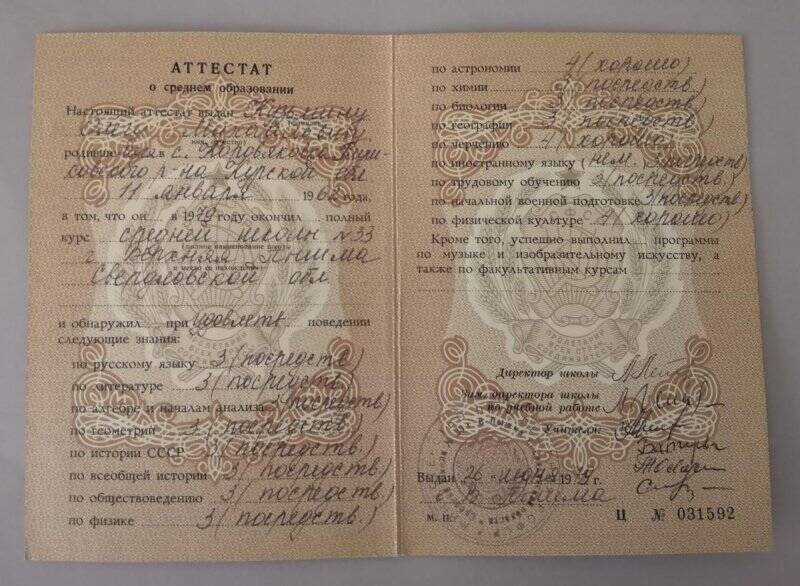 АТТЕСТАТ
о среднем образовании
Настоящий аттестат выдан Кузьмину
Олегу Михайловичу
родившемуся в с. Коровяковка
района Курской обл.
11 января 1962 года,
в том, что он в 1979 году окончил полный
курс средней школы №33
г. Верхняя Пышма
Свердловской обл.
и обнаружил при удовлетв. поведении
следующие знания:
по русскому языку 3 (посредств)
по литературе 3 (посредств)
по алгебре и началам анализа 3 (посредств)
по геометрии 3 (посредств
по истории СССР 3 (посредств.)
по всеобщей истории 3 (посредств)
по обществоведению 3 (посредств)
по физике 3 (посредств.)
по астрономии 4 (хорошо)
по химии 3 (посредств)
по биологии 3 (посредств)
по географии 3 (посредств)
по черчению 4 (хорошо)
по иностранному языку (нем. 3 (посредств)
по трудовому обучению 3 (посредств.)
по начальной военной подготовке 3 (посредств)
по физической культуре 4 (хорошо)
Кроме того, успешно выполнил программы
по музыке и изобразительному искусству, а
также по факультативным курсам
Директор школы
Зам. директора школы
по учебной работе
Учителя:
Выдан 26 июня 1979 г.
г. В. Пышма
М. П.
Ц № 031592